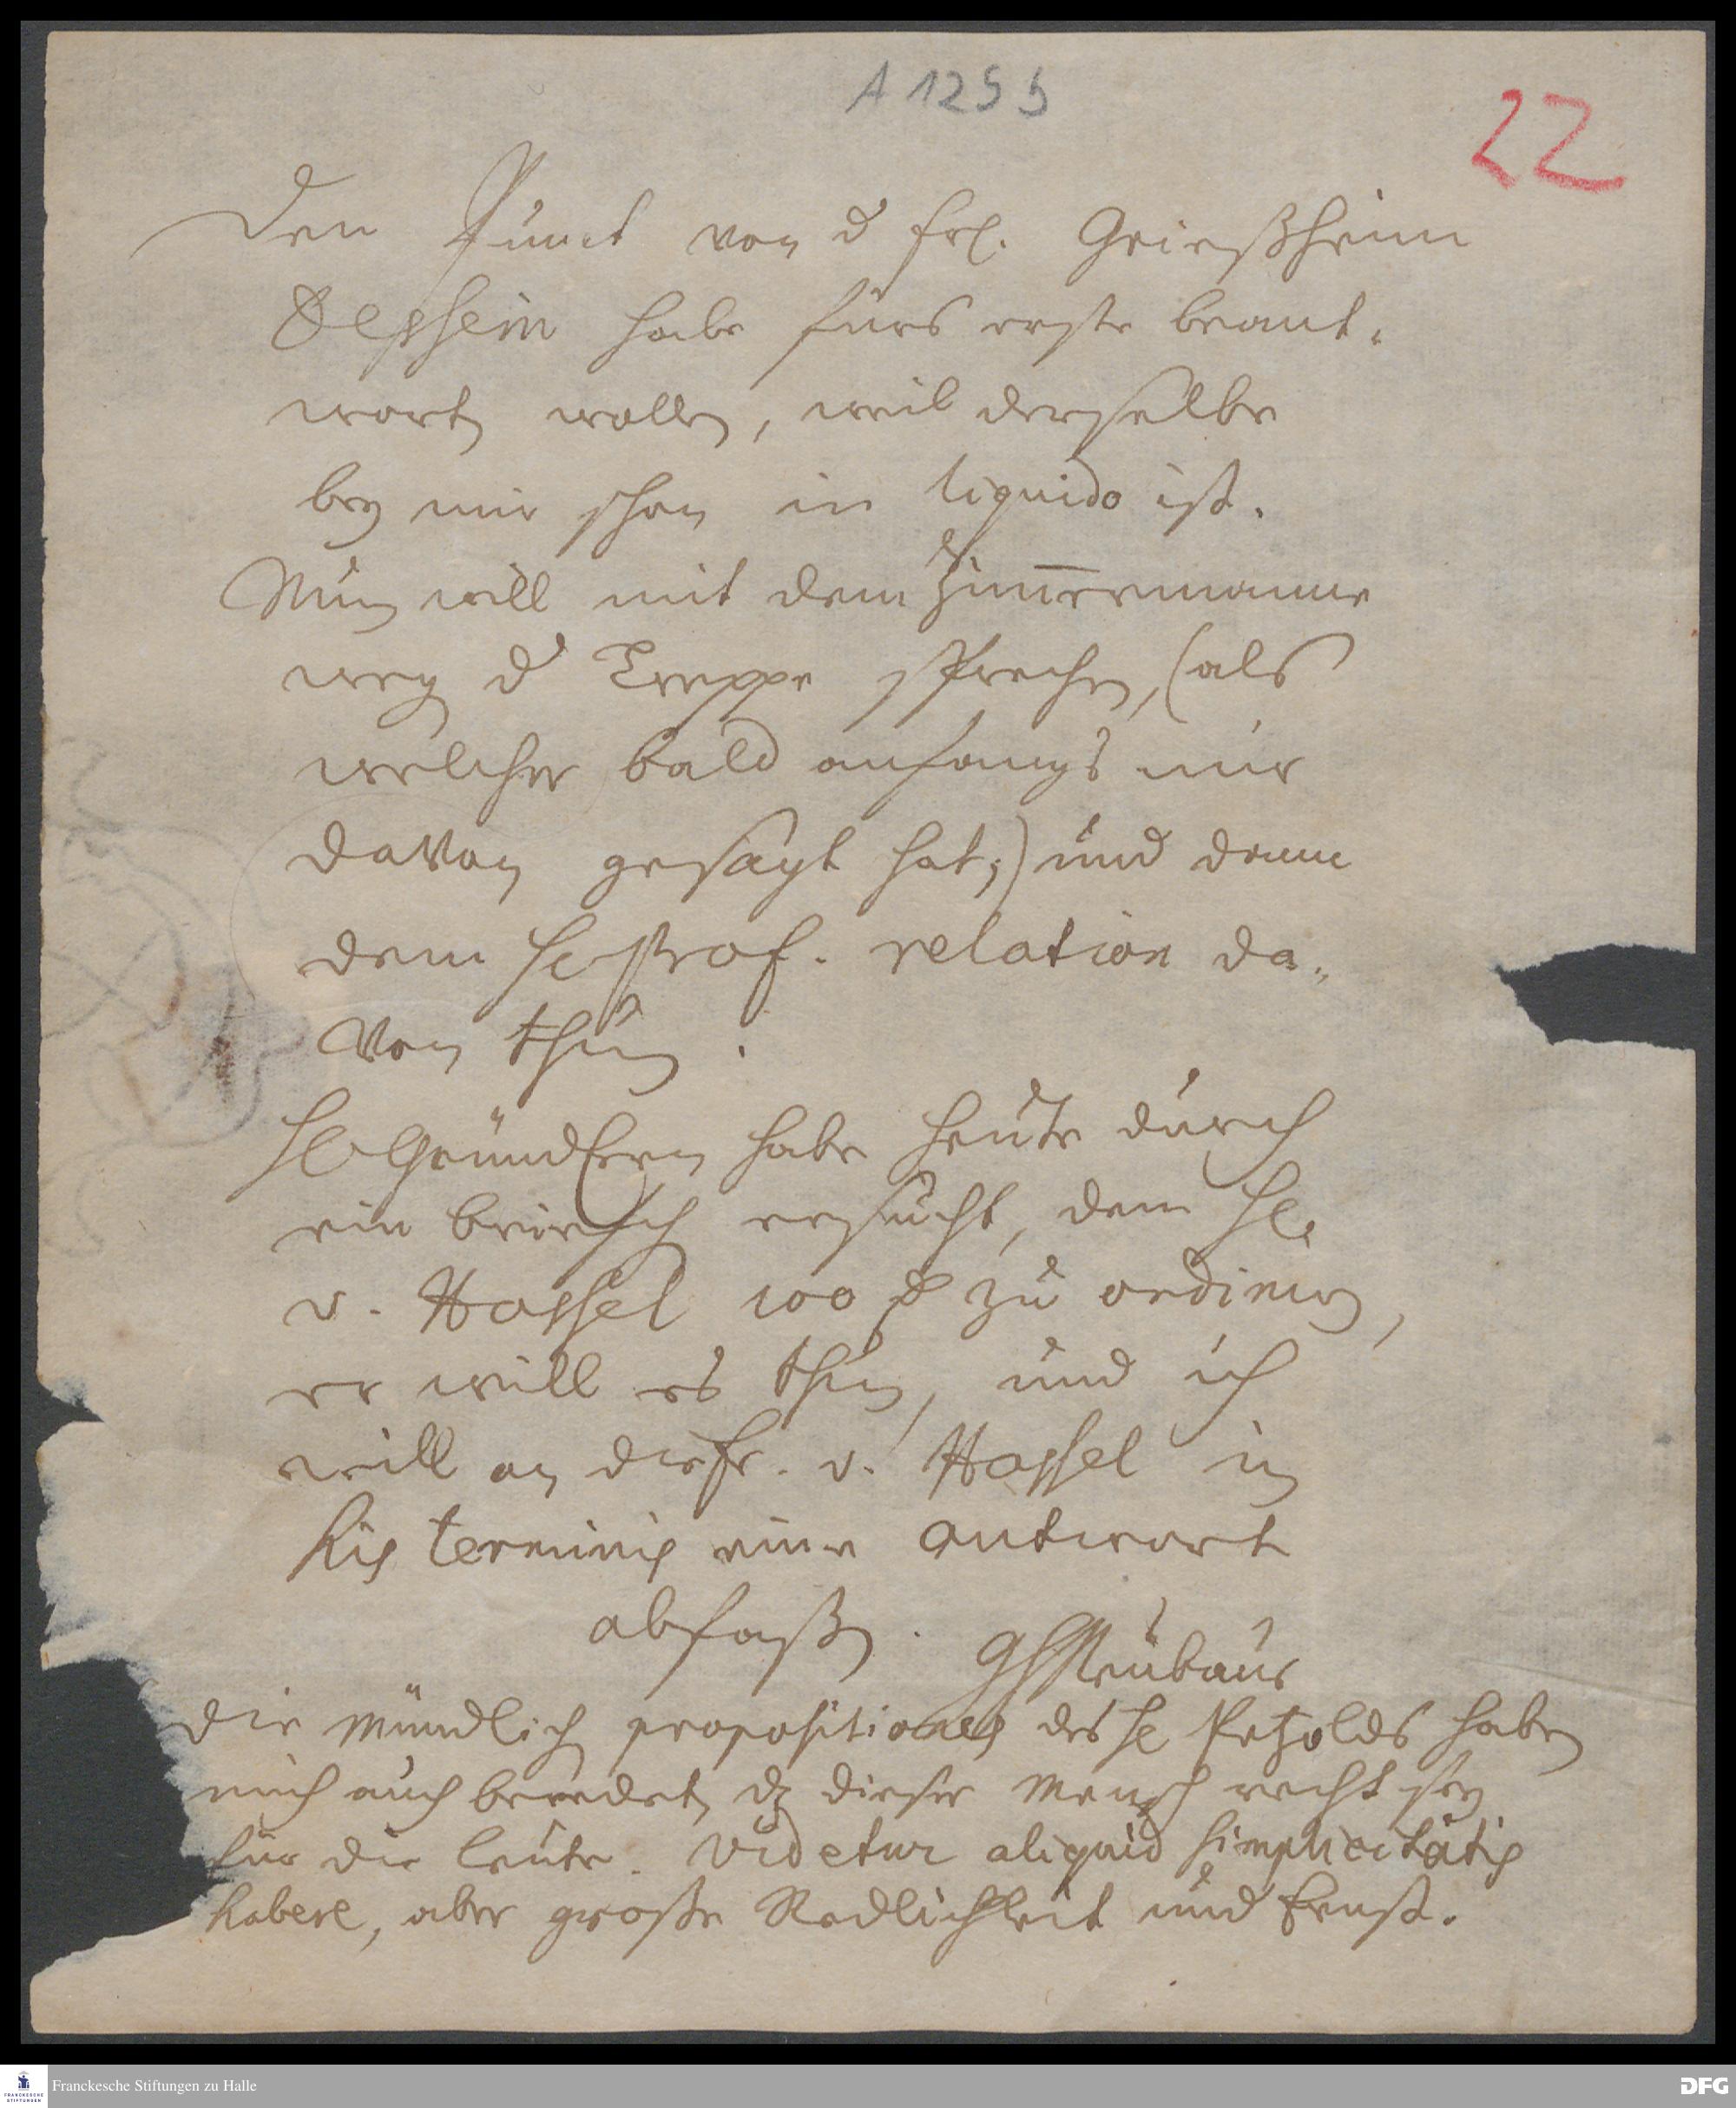 A 1255
22
Den Punct von d Frl. Grießheim
Dessein habe fürs erste beant-
worten wollen, weil derselbe
bey mir schon in liquido ist.
Nun will mit dem Zim̅ermanne
wegen d Treppe sprechen, (als
welcher bald anfangs mir
davon gesagt hat;) und denn
dem H Prof. relation da-
von thun.
H Gründlern habe heute durch
ein briefch ersucht, dem H.
v. Hassel 100 zu ordiniren,
er will es thun, und ich
will an die Fr. v. Hassel in
his terminis eine Antwort
abfaßen. GHNeubaur
Die Mündlichen propositiones des H Petzolds haben
mich auch beredet, dz dieser Mensch recht sey
für die Leute. Videtur aliquid simplicitatis
habere, aber große Redlichkeit und Ernst.
FRANCKESCHE
STIFTUNGEN
Franckesche Stiftungen zu Halle
DFG